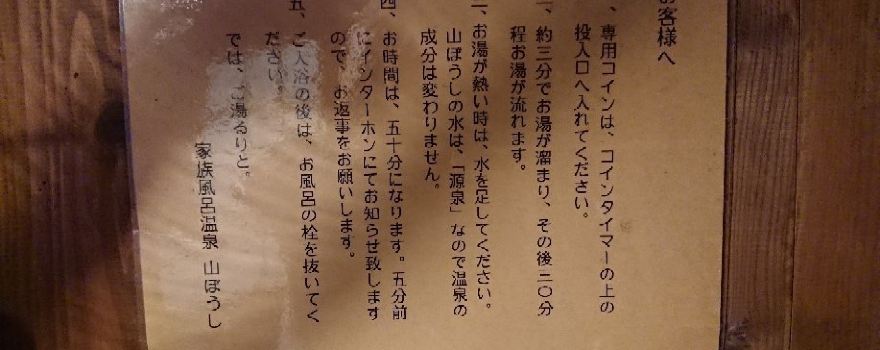 お客様へ
一、専用コインは、コインタイマーの上の
投入口へ入れてください。
二、約三分でお湯が溜まり、その後二〇分
程お湯が流れます。
三、お湯が熱い時は、水を足してください。
山ぼうしの水は、「源泉」なので温泉の
成分は変わりません。
四、お時間は、五十分になります。五分前
にインターホンにてお知らせ致します
ので、お返事をお願いします。
五、ご入浴の後は、お風呂の栓を抜いてく
ださい。
では、ご湯るりと。
家族風呂温泉 山ぼうし